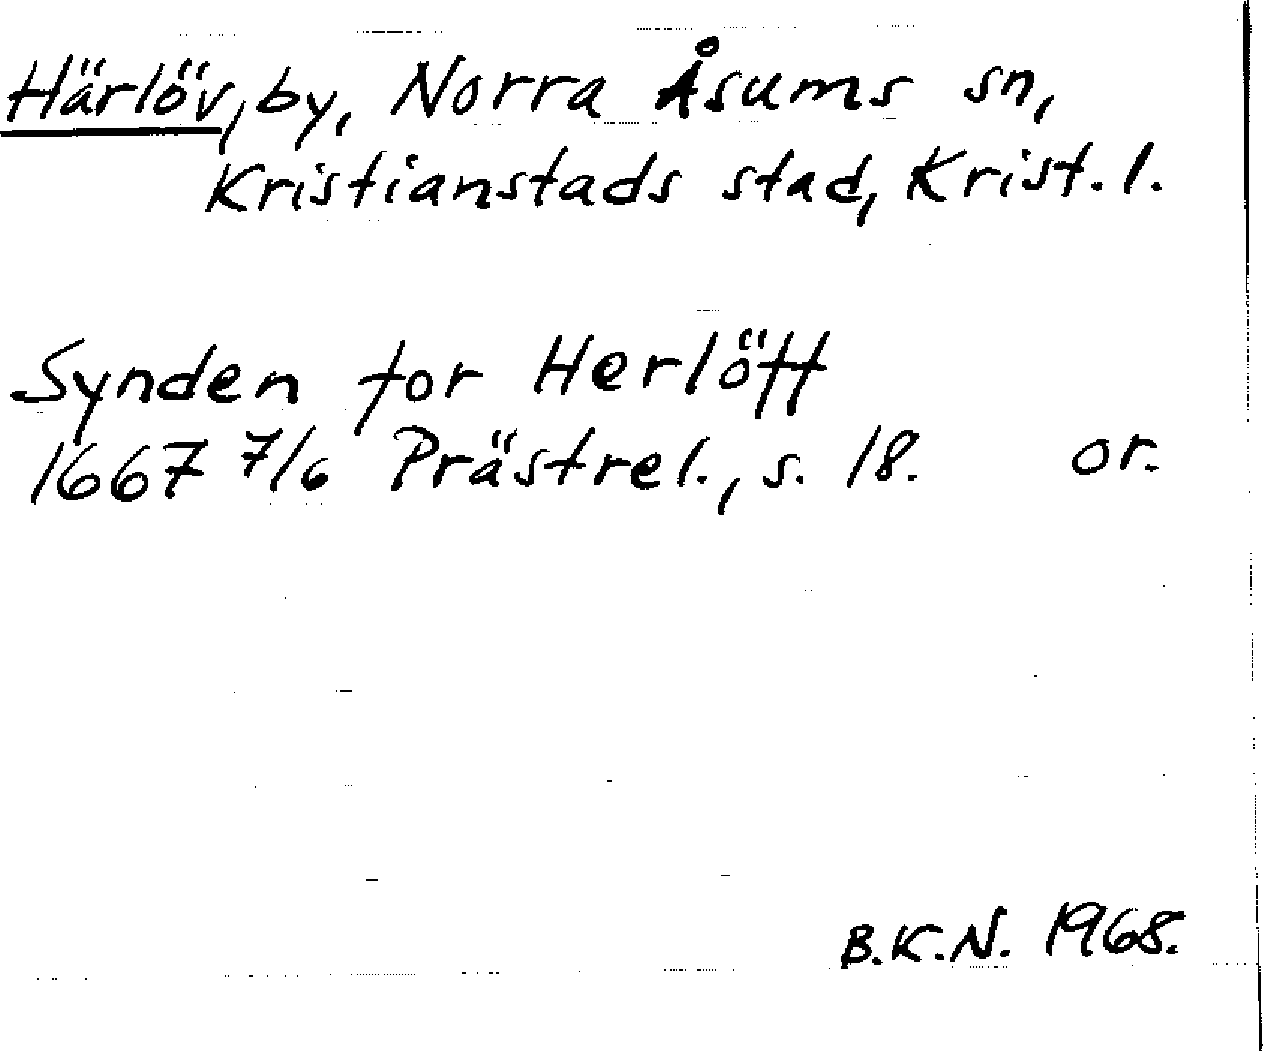 Härlöv, by, Norra Åsums sn,
Kristianstads stad, Krist. l.
Synden for Herlöff
1667 7/6 Prästrel., s. 18. or.
B.K.N. 1968.